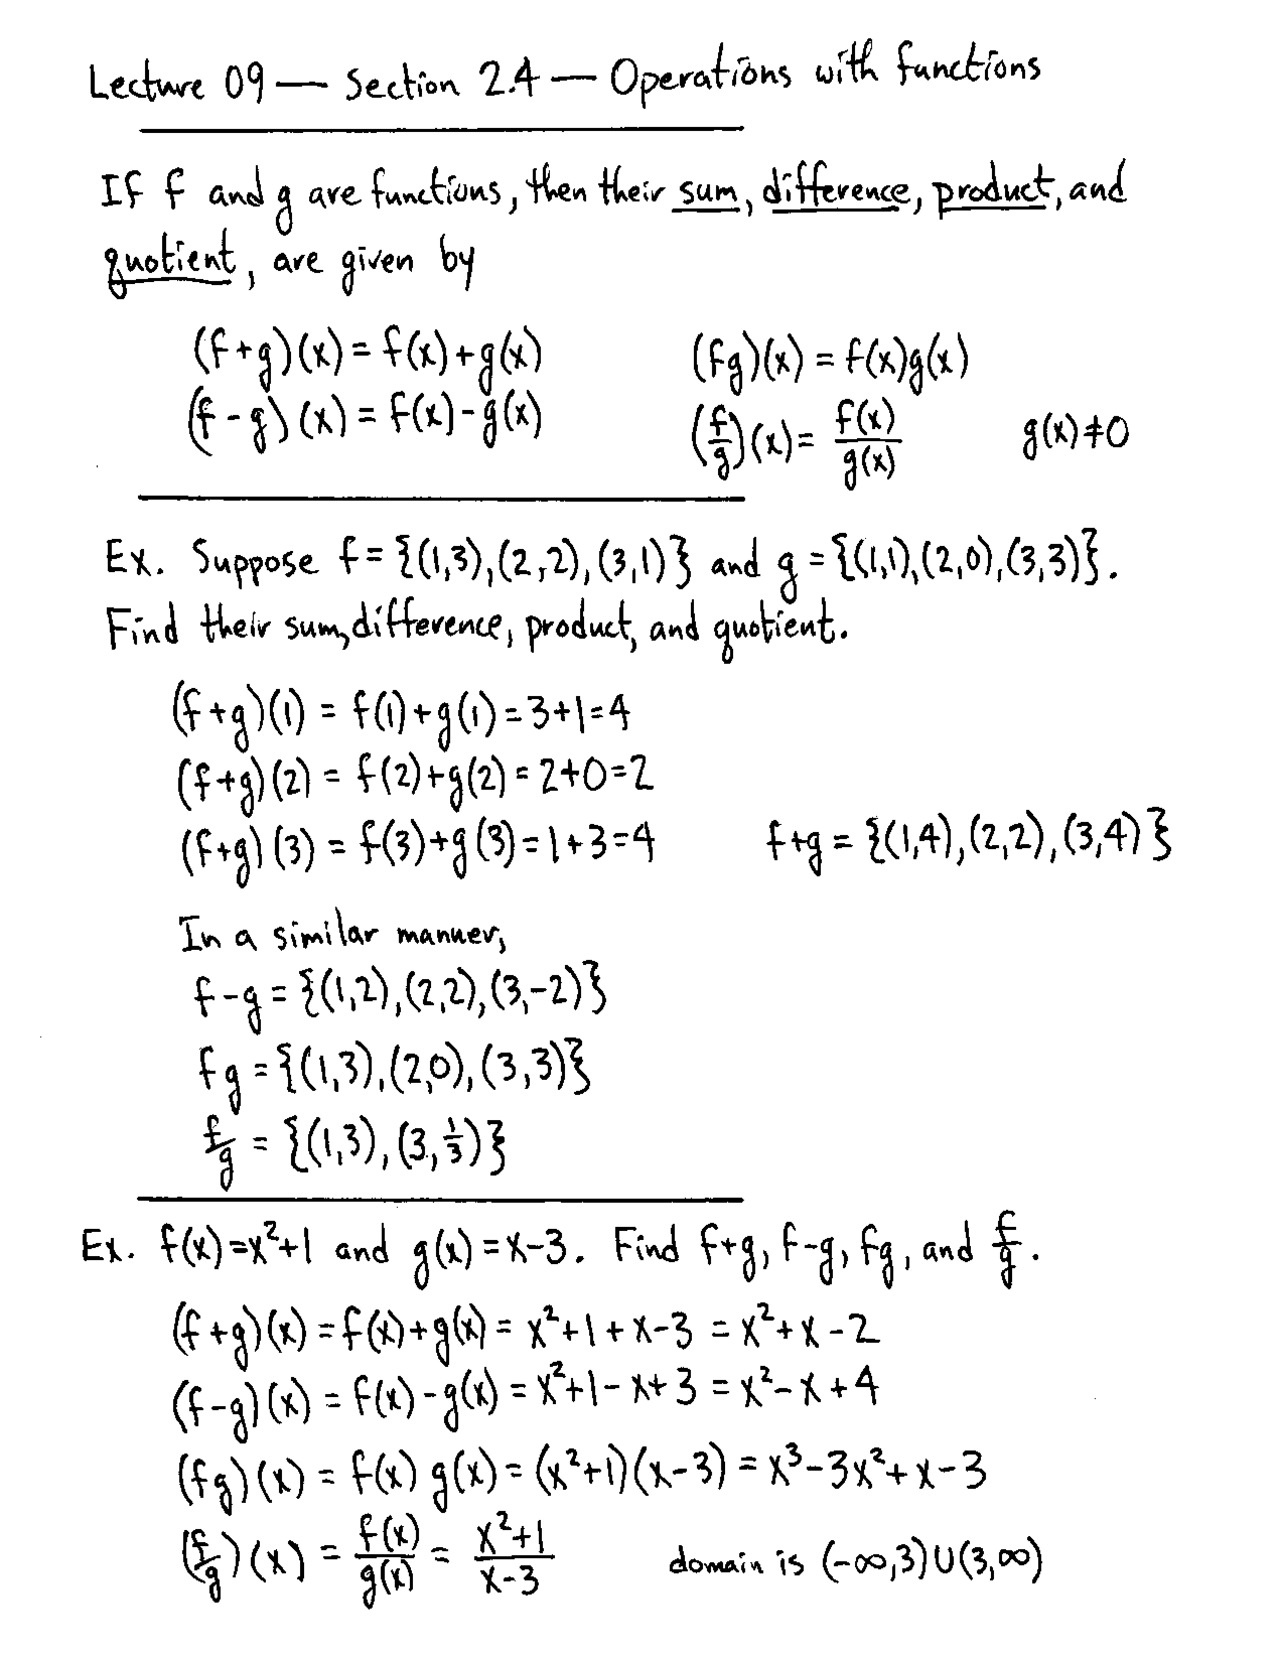 Lecture 09 — Section 2.4 — Operations with functions
If f and g are functions, then their sum, difference, product, and
quotient, are given by
(f+g)(x) = f(x)+g(x) (fg)(x) = f(x)g(x)
(f-g)(x) = f(x)-g(x) (f/g)(x) = f(x)/g(x) g(x)≠0
Ex. Suppose f = {(1,3),(2,2),(3,1)} and g = {(1,1),(2,0),(3,3)}.
Find their sum, difference, product, and quotient.
(f+g)(1) = f(1)+g(1) = 3+1=4
(f+g)(2) = f(2)+g(2) = 2+0=2
(f+g)(3) = f(3)+g(3) = 1+3=4 f+g = {(1,4),(2,2),(3,4)}
In a similar manner,
f-g = {(1,2),(2,2),(3,-2)}
fg = {(1,3),(2,0),(3,3)}
f/g = {(1,3),(3,1/3)}
Ex. f(x)=x²+1 and g(x)=x-3. Find f+g, f-g, fg, and f/g.
(f+g)(x) = f(x)+g(x) = x²+1+x-3 = x²+x-2
(f-g)(x) = f(x)-g(x) = x²+1-x+3 = x²-x+4
(fg)(x) = f(x) g(x) = (x²+1)(x-3) = x³-3x²+x-3
(f/g)(x) = f(x)/g(x) = x²+1/x-3 domain is (-∞,3)∪(3,∞)